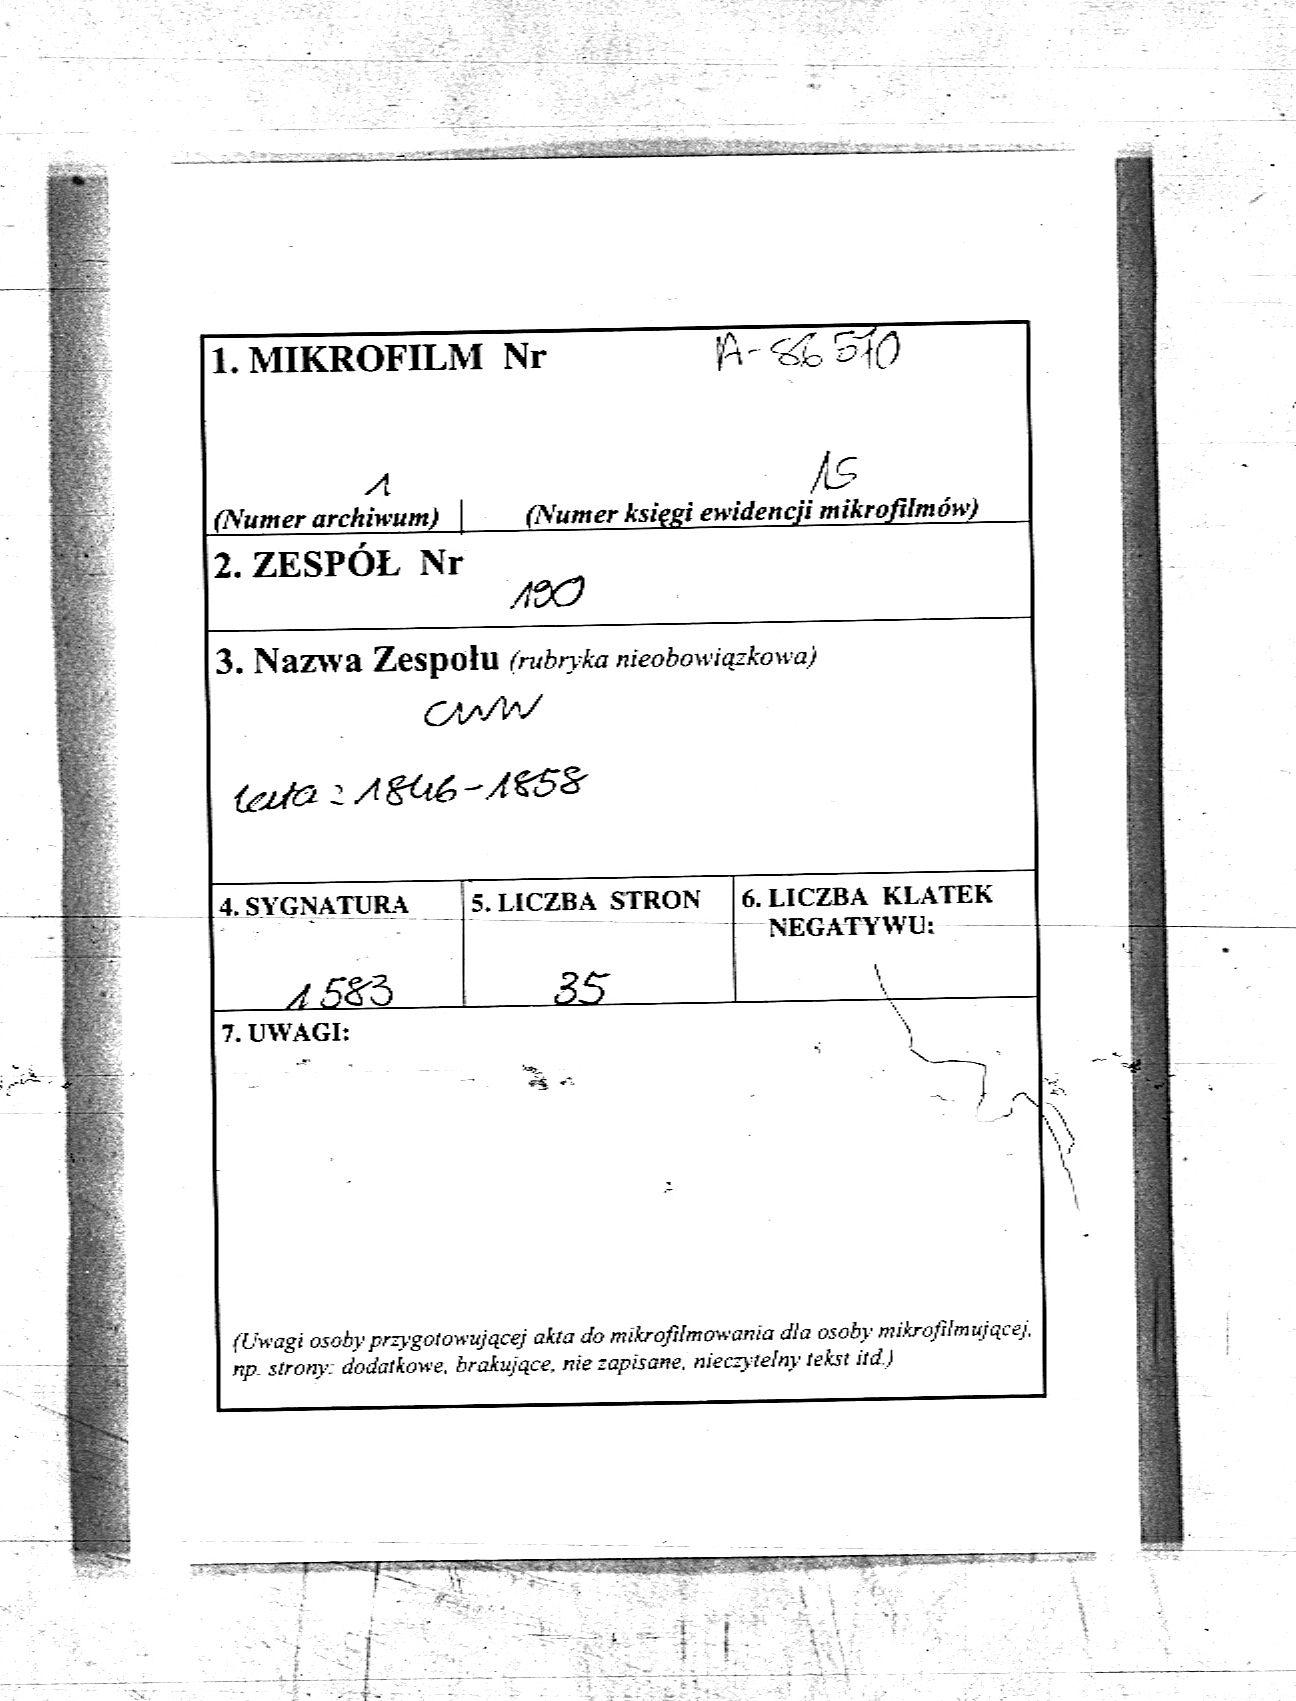 1. MIKROFILM Nr A-86510
1 15
(Numer archiwum) (Numer księgi ewidencji mikrofilmów)
2. ZESPÓŁ Nr
190
3. Nazwa Zespołu (rubryka nieobowiązkowa)
CWW
lata: 1846-1858
4. SYGNATURA 5. LICZBA STRON 6. LICZBA KLATEK
NEGATYWU:
1583 35
7. UWAGI:
(Uwagi osoby przygotowującej akta do mikrofilmowania dla osoby mikrofilmującej,
np. strony: dodatkowe, brakujące, nie zapisane, nieczytelny tekst itd.)